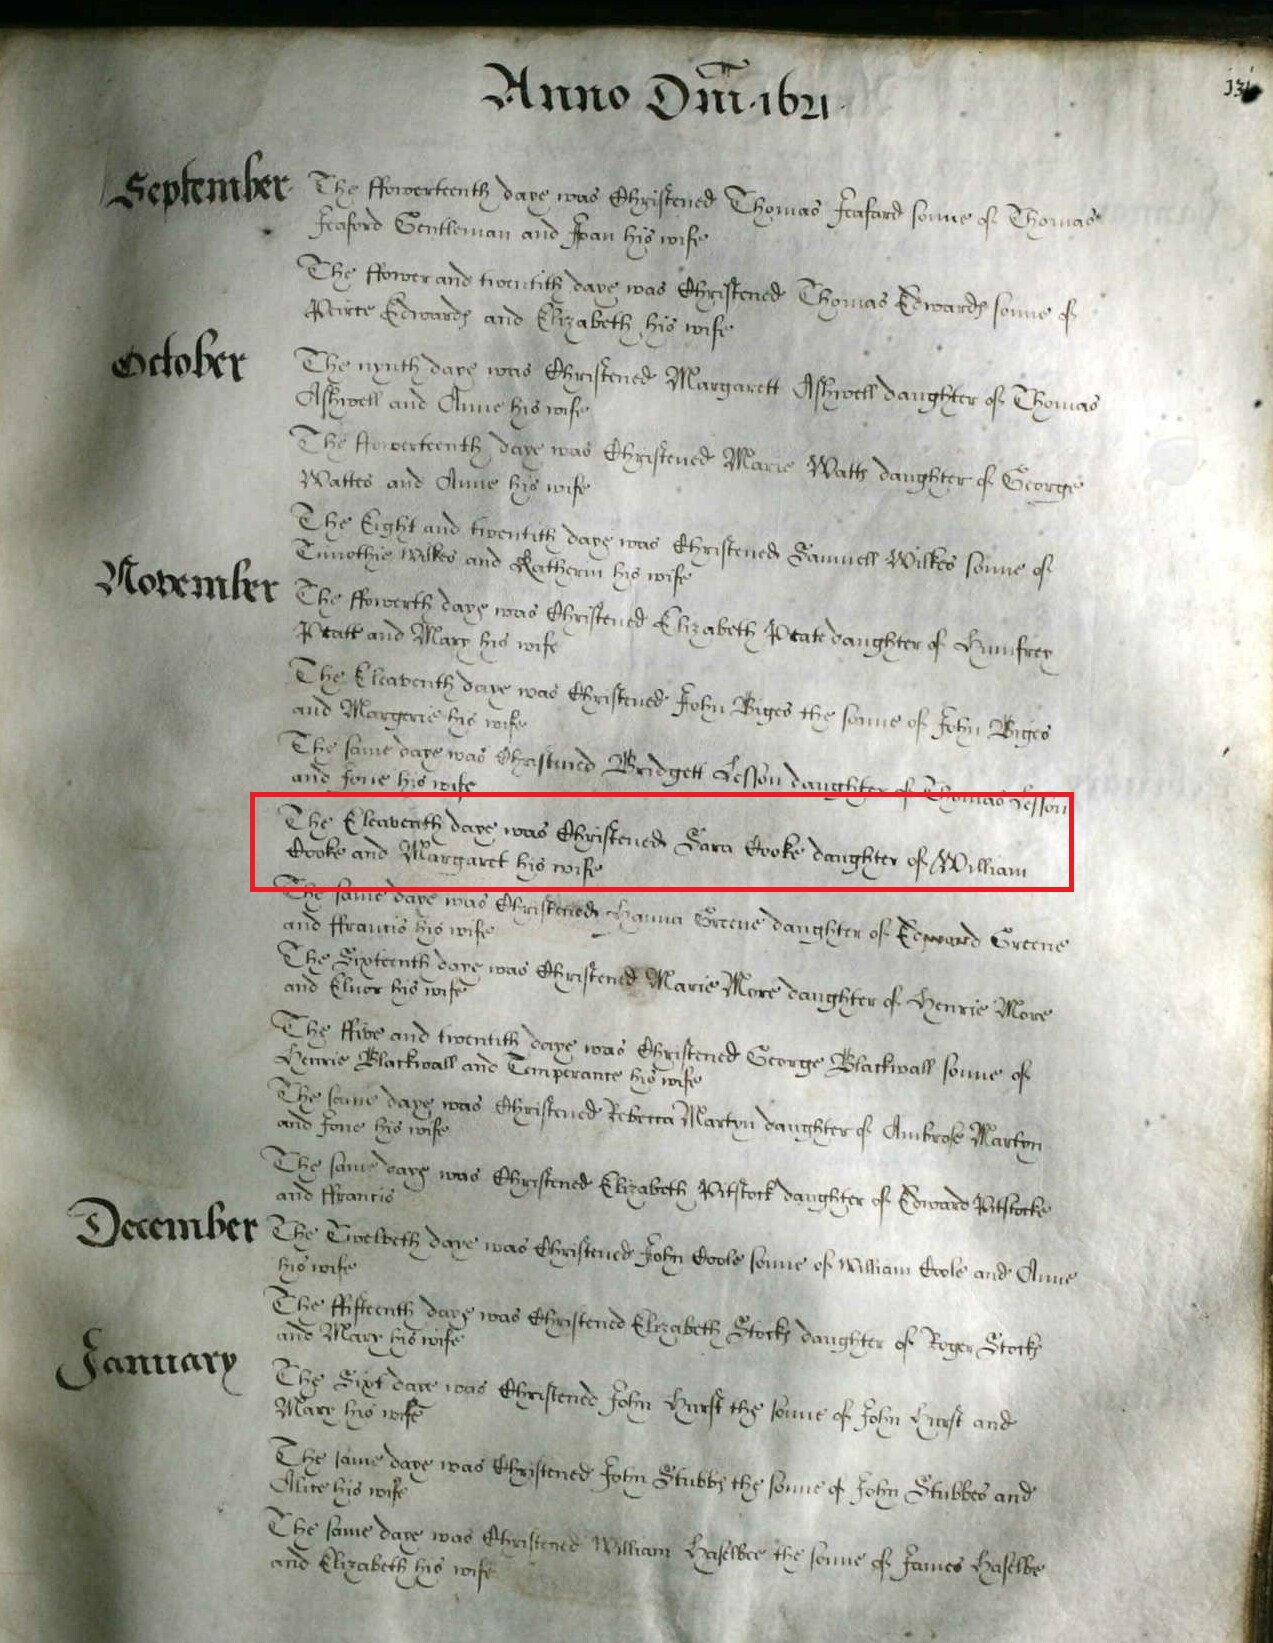 Anno Dm̄ 1621
131
September The ffowerteenth daye was Christened Thomas Seaford sonne of Thomas
Seaford Gentleman and Joan his wife
The ffower and twentith daye was Christened Thomas Edwards sonne of
Peirce Edwards and Elizabeth his wife
October The nynth daye was Christened Margarett Ashwell daughter of Thomas
Ashwell and Anne his wife
The ffowerteenth daye was Christened Marie Watts daughter of George
Wattes and Anne his wife
The Eight and twentith daye was Christened Samuell Wilkes sonne of
Timothie Wilkes and Katherin his wife
November The ffowerth daye was Christened Elizabeth Peate daughter of Humfrey
Peatt and Mary his wife
The Eleaventh daye was Christened John Biges the sonne of John Biges
and Margerie his wife
The same daye was Christened Bridgett Lesson daughter of Thomas Lesson
and Jone his wife
The Eleaventh daye was Christened Sara Cooke daughter of William
Cooke and Margaret his wife
The same daye was Christened Hanna Greene daughter of Edward Greene
and ffrancis his wife
The Sixteenth daye was Christened Marie More daughter of Henrie More
and Elnor his wife
The ffive and twentith daye was Christened George Blackwall sonne of
Henrie Blackwall and Temperance his wife
The same daye was Christened Rebecca Martyn daughter of Ambrose Martyn
and Jone his wife
The same daye was Christened Elizabeth Pitstock daughter of Edward Pitstocke
and ffrancis
December The Twelveth daye was Christened John Coole sonne of William Coole and Anne
his wife
The ffifteenth daye was Christened Elizabeth Stocks daughter of Roger Stocks
and Mary his wife
January The Sixt daye was Christened John Hurst the sonne of John Hurst and
Mary his wife
The same daye was Christened John Stubbs the sonne of John Stubbes and
Alice his wife
The same daye was Christened William Haselbee the sonne of James Haselbe
and Elizabeth his wife